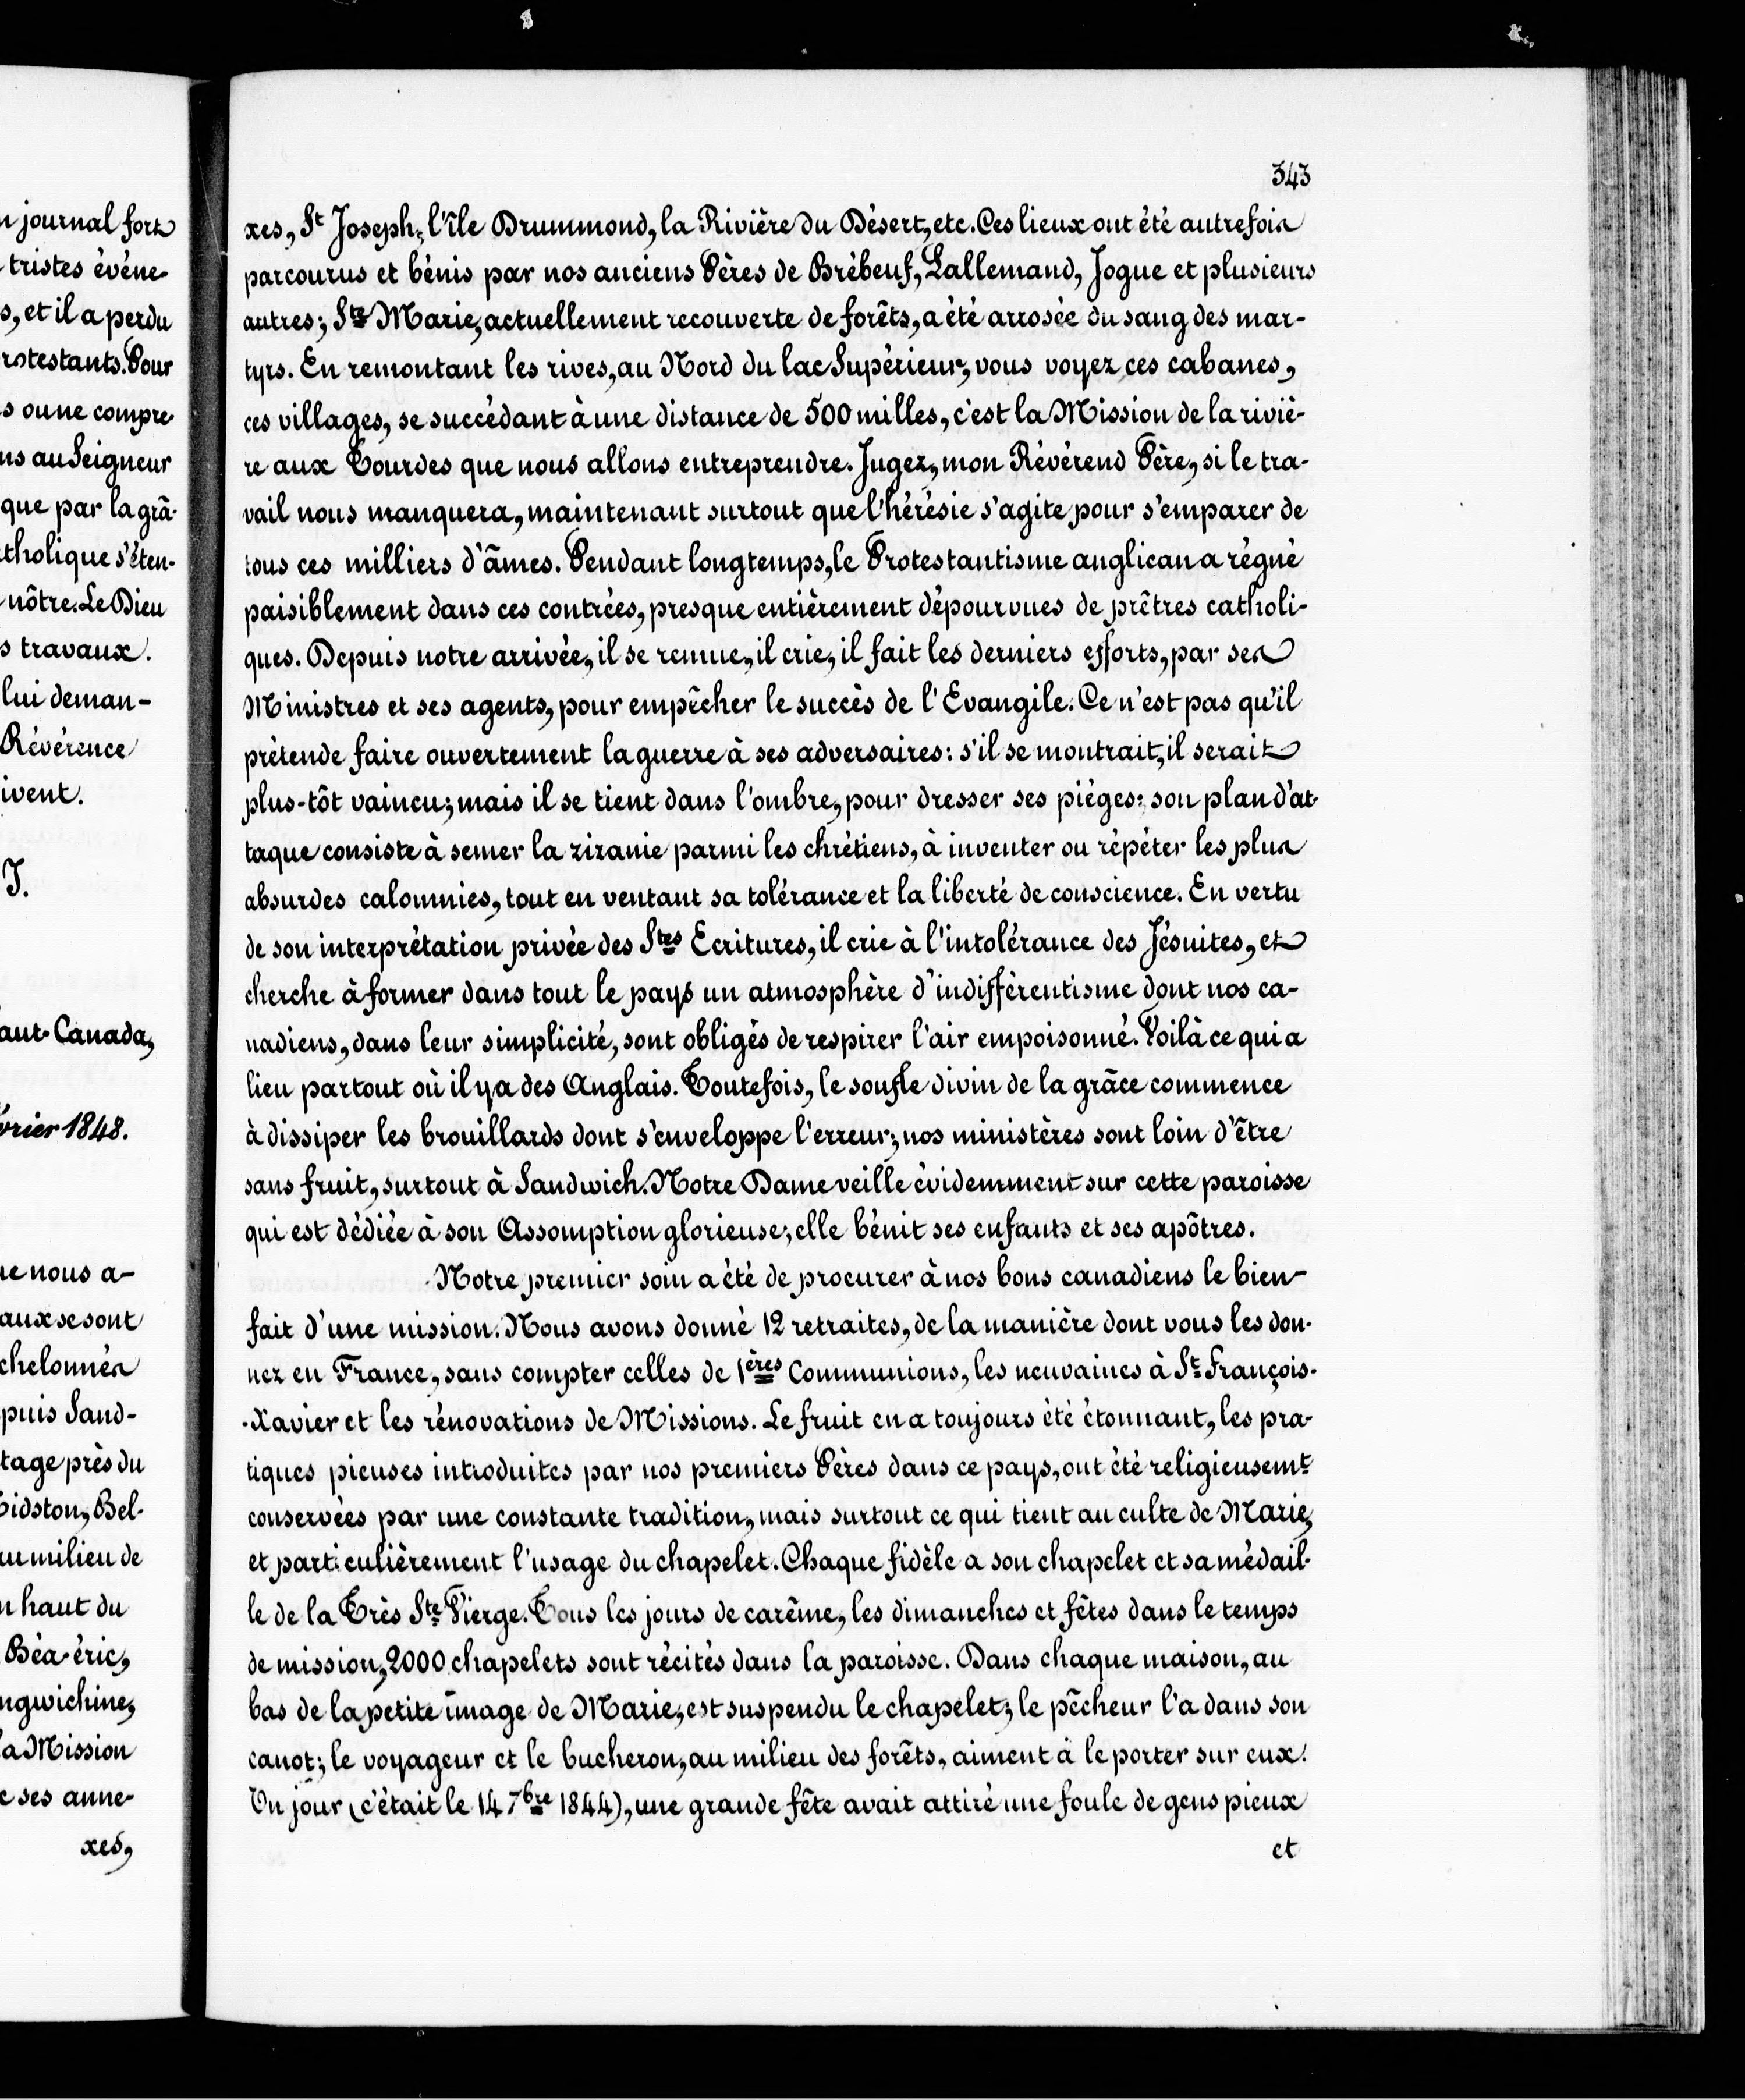 n journal fort
tristes événe-
s, et il a perdu
rotestants. Pour
s ou ne compre
ns au Seigneur
que par la grâ-
tholique s'éten-
nôtre. Le Dieu
s travaux.
lui deman-
Révérence
ivent.
J.
aut-Canada,
évrier 1848.
ne nous a-
aux se sont
chelonnés
puis Sand-
tage près du
idston, Bel-
au milieu de
n haut du
Béa-éric,
ngwichine,
la Mission
e ses anne-
xes,
343
xes, St Joseph, l'île Drummond, la Rivière du Désert, etc. Ces lieux ont été autrefois
parcourus et bénis par nos anciens Pères de Brébeuf, Lallemand, Jogue et plusieurs
autres; Ste Marie, actuellement recouverte de forêts, a été arrosée du sang des mar-
tyrs. En remontant les rives, au Nord du lac Supérieur, vous voyez ces cabanes,
ces villages, se succédant à une distance de 500 milles, c'est la Mission de la riviè-
re aux Tourdes que nous allons entreprendre. Jugez, mon Révérend Père, si le tra-
vail nous manquera, maintenant surtout que l'hérésie s'agite pour s'emparer de
tous ces milliers d'âmes. Pendant longtemps, le Protestantisme anglican a régné
paisiblement dans ces contrées, presque entièrement dépourvues de prêtres catholi-
ques. Depuis notre arrivée, il se remue, il crie, il fait les derniers efforts, par ses
Ministres et ses agents, pour empêcher le succès de l'Evangile. Ce n'est pas qu'il
prétende faire ouvertement la guerre à ses adversaires: s'il se montrait, il serait
plus-tôt vaincu; mais il se tient dans l'ombre, pour dresser ses piéges: son plan d'at-
taque consiste à semer la zizanie parmi les chrétiens, à inventer ou répéter les plus
absurdes calomnies, tout en ventant sa tolérance et la liberté de conscience. En vertu
de son interprétation privée des Stes Ecritures, il crie à l'intolérance des Jésuites, et
cherche à former dans tout le pays un atmosphère d'indifférentisme dont nos ca-
nadiens, dans leur simplicité, sont obligés de respirer l'air empoisonné. Voilà ce qui a
lieu partout où il y a des Anglais. Toutefois, le soufle divin de la grâce commence
à dissiper les brouillards dont s'enveloppe l'erreur; nos ministères sont loin d'être
sans fruit, surtout à Sandwich. Notre Dame veille évidemment sur cette paroisse
qui est dédiée à son Assomption glorieuse; elle bénit ses enfants et ses apôtres.
Notre premier soin a été de procurer à nos bons canadiens le bien-
fait d'une mission. Nous avons donné 12 retraites, de la manière dont vous les don-
nez en France, sans compter celles de 1ères Communions, les neuvaines à St François-
-Xavier et les rénovations de Missions. Le fruit en a toujours été étonnant, les pra-
tiques pieuses introduites par nos premiers Pères dans ce pays, ont été religieusemt
conservées par une constante tradition, mais surtout ce qui tient au culte de Marie,
et particulièrement l'usage du chapelet. Chaque fidèle a son chapelet et sa médail-
le de la Très Ste Vierge. Tous les jours de carême, les dimanches et fêtes dans le temps
de mission, 2000 chapelets sont récités dans la paroisse. Dans chaque maison, au
bas de la petite image de Marie, est suspendu le chapelet; le pêcheur l'a dans son
canot; le voyageur et le bucheron, au milieu des forêts, aiment à le porter sur eux.
Un jour (c'était le 14 7bre 1844), une grande fête avait attiré une foule de gens pieux
et